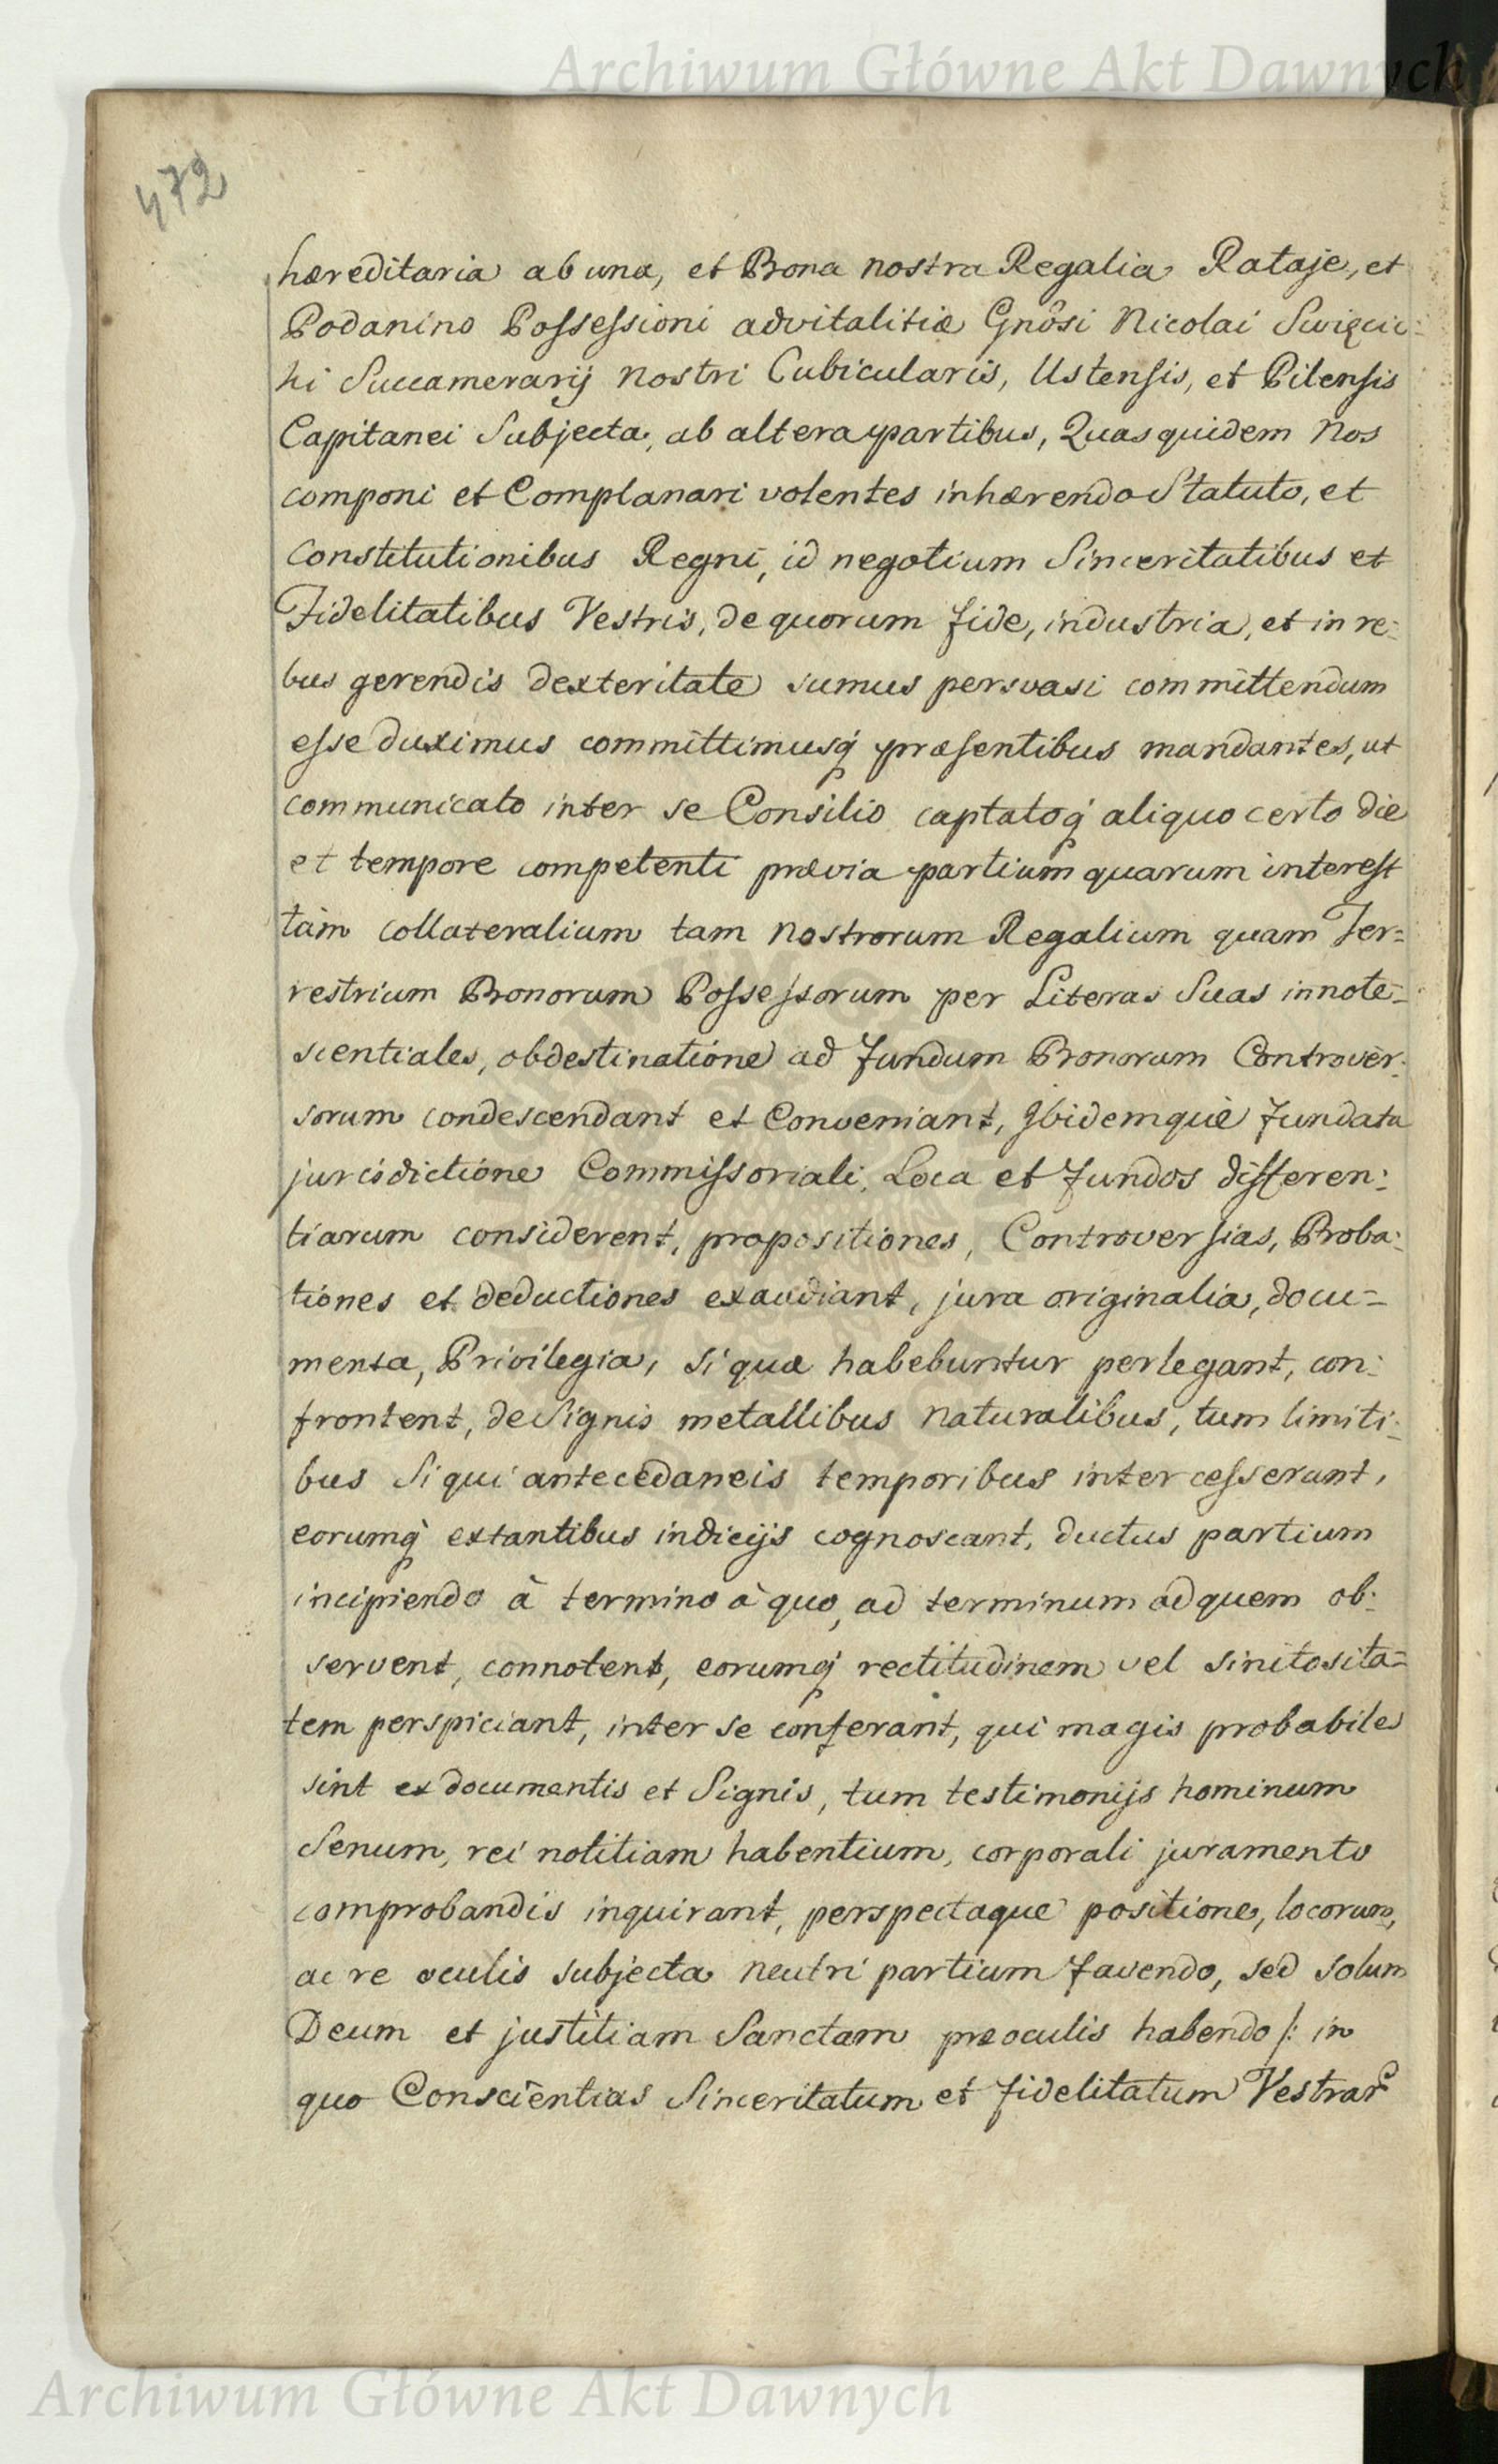 Archiwum Główne Akt Dawnych
472
hæreditaria ab una, et Bona nostra Regalia Rataje, et
Podanino Possessioni advitalitiæ Gnôsi Nicolai Swięcic:
ki Succamerarij nostri Cubicularis, Ustensis, et Pilensis
Capitanei Subjecta, ab altera partibus, Quas quidem Nos
componi et Complanari volentes inhærendo Statuto, et
Constitutionibus Regni, id negotium Sinceritatibus et
Fidelitatibus Vestris, de quorum fide, industria, et in re:
bus gerendis dexteritate sumus persvasi committendum
esse duximus committimusq́ præsentibus mandantes, ut
communicato inter se Consilio captatoq́ aliquo certo die
et tempore competenti prævia partium quarum interest
tàm collateralium tam nostrorum Regalium quam Ter=
restrium Bonorum Possessorum per Literas Suas innote=
scentiales, obdestinatione ad fundum Bonorum Controver:
sorum condescendant et Conveniant, Ibidemque fundata
jurisdictione Commissoriali, Loca et fundos differen:
tiarum considerent, propositiones, Controversias, Proba:
tiones et deductiones exaudiant, jura originalia, docu=
menta, Privilegia, si quæ habebuntur perlegant, con:
frontent, de Signis metallibus naturalibus, tum limiti:
bus Si qui antecedaneis temporibus intercesserunt,
eorumq́ extantibus indicijs cognoscant, ductus partium
incipiendo à termino à quo, ad terminum ad quem ob:
servent, connotent, eorumq́ rectitudinem vel sinitosita=
tem perspiciant, inter se conferant, qui magis probabiles
sint ex documentis et Signis, tum testimonijs hominum
Senum, rei notitiam habentium, corporali juramento
comprobandis inquirant, perspectaque positione, locorum,
ac re oculis subjecta neutri partium favendo, sed solum
Deum et justitiam Sanctam præ oculis habendo /: in
quo Conscientias Sinceritatum et fidelitatum Vestrar
Archiwum Główne Akt Dawnych